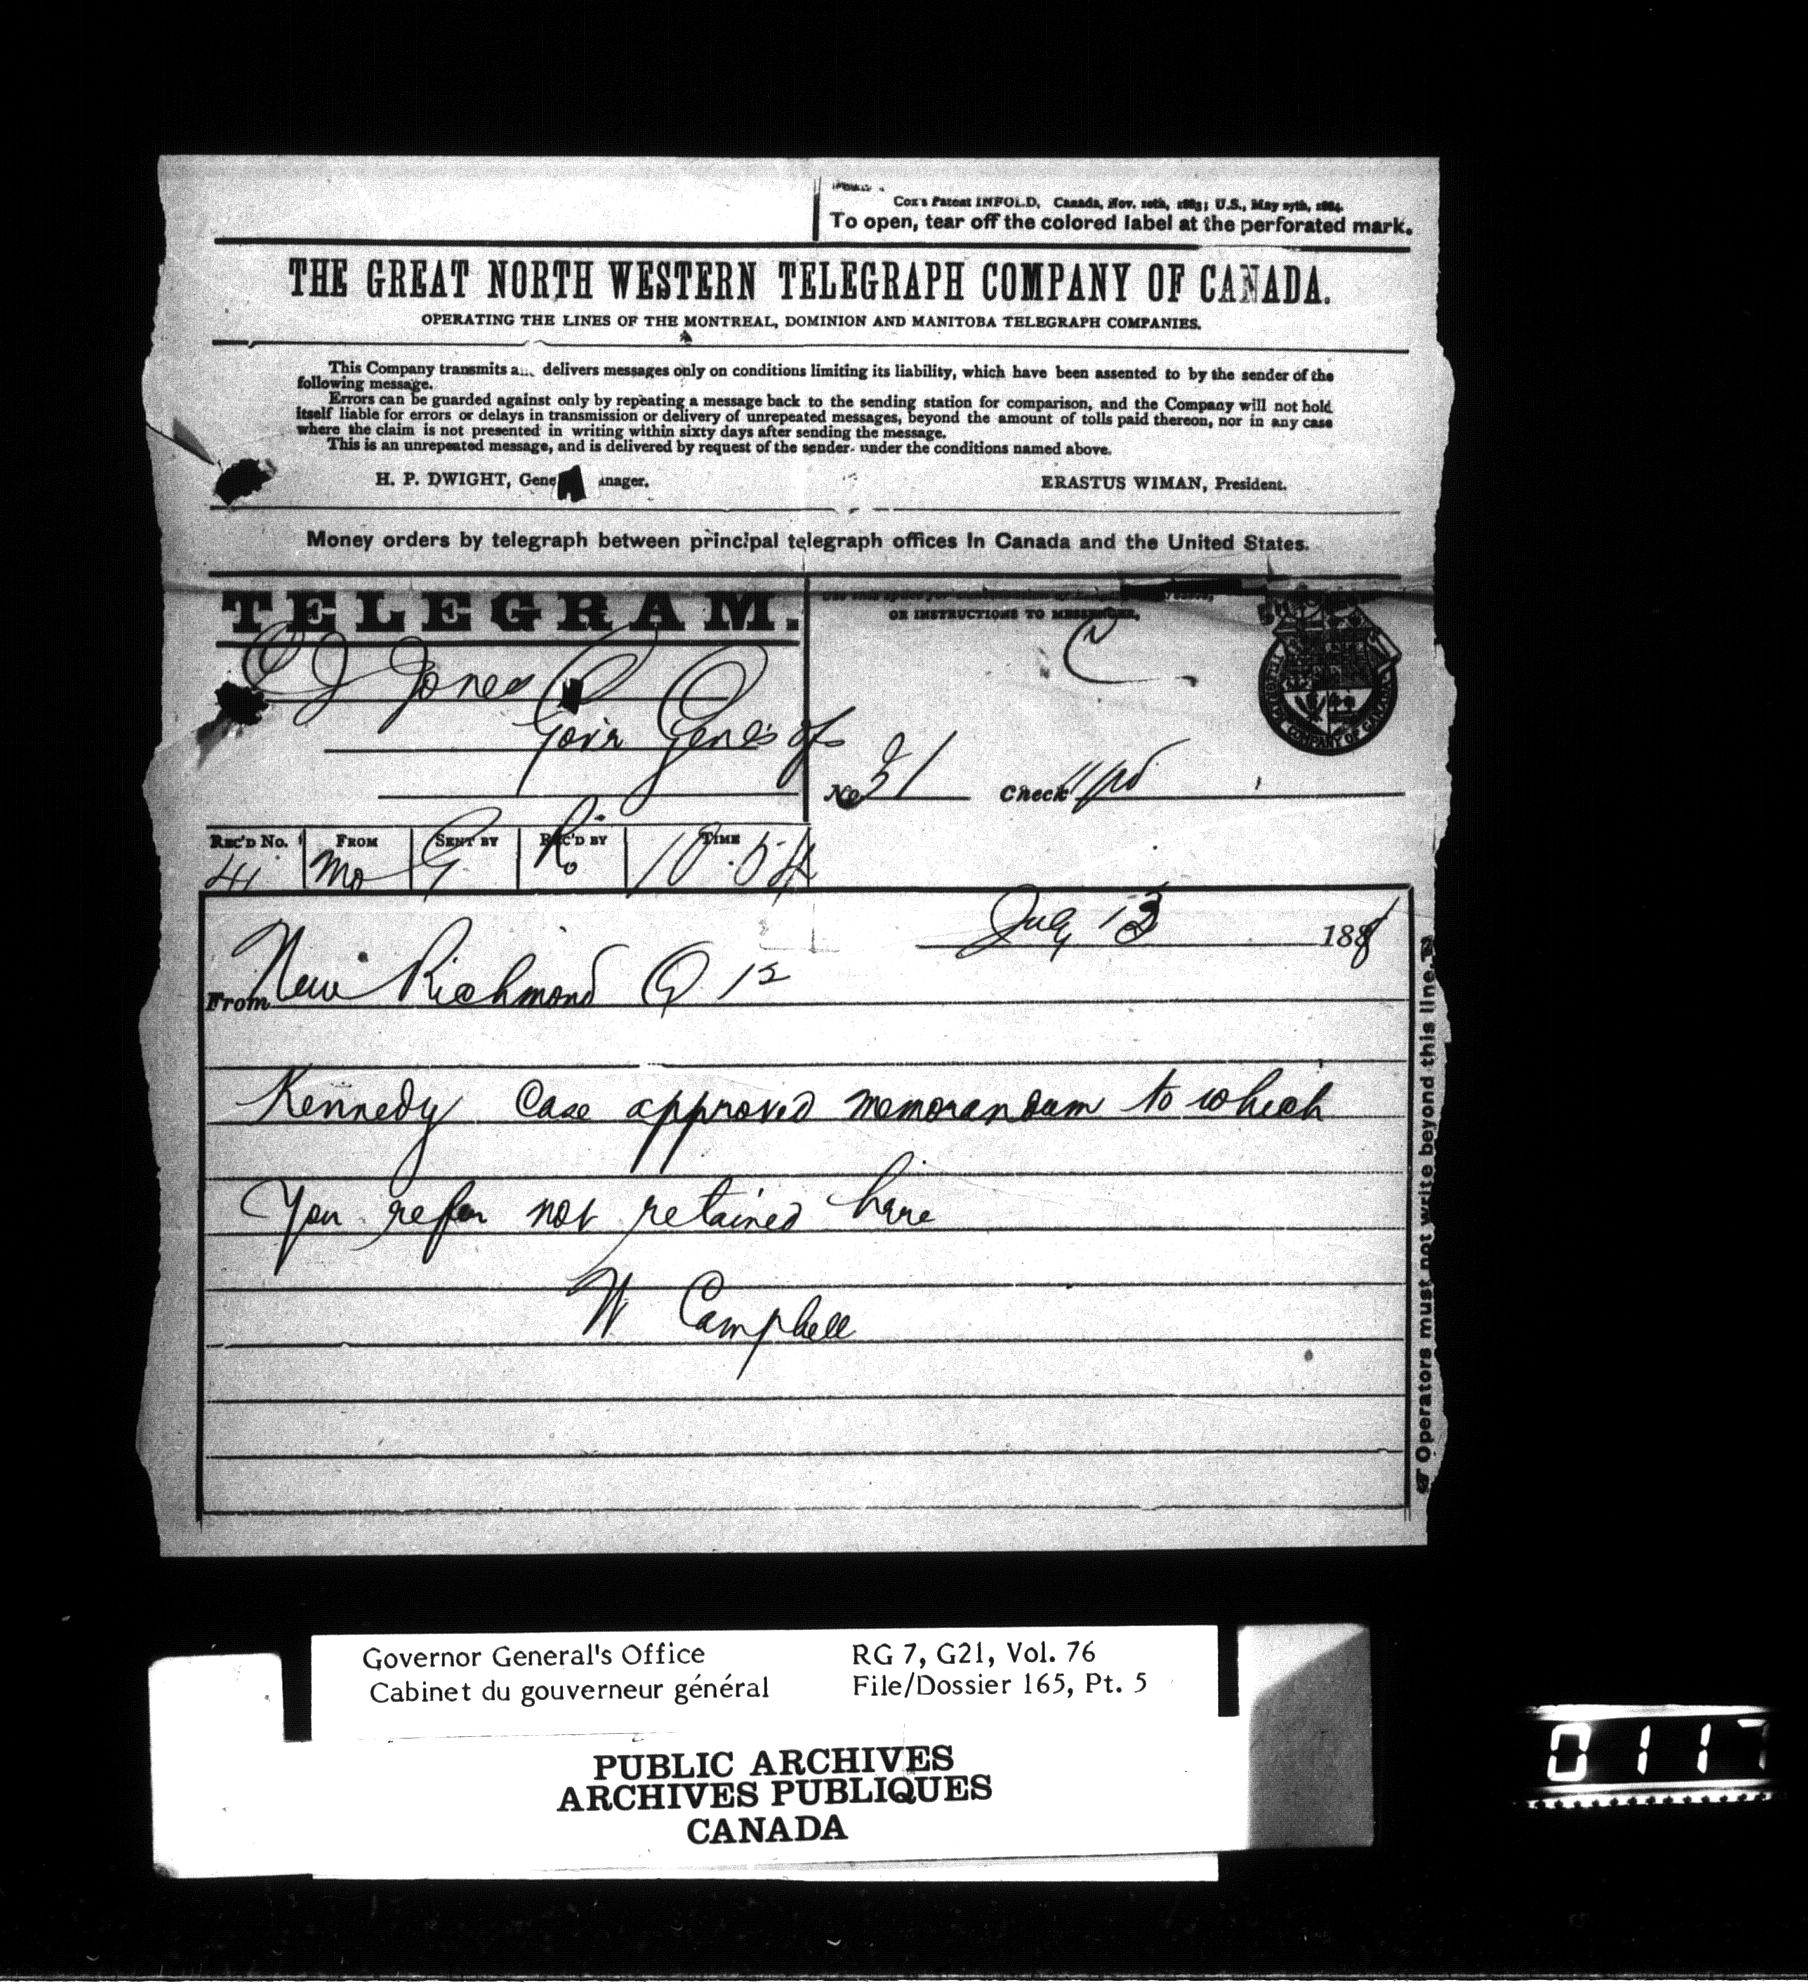 Cox's Patent INFOLD, Canada, Nov. 20th, 1883; U.S., May 27th, 1884.
To open, tear off the colored label at the perforated mark.
THE GREAT NORTH WESTERN TELEGRAPH COMPANY OF CANADA.
OPERATING THE LINES OF THE MONTREAL, DOMINION AND MANITOBA TELEGRAPH COMPANIES.
This Company transmits a... delivers messages only on conditions limiting its liability, which have been assented to by the sender of the
following message.
Errors can be guarded against only by repeating a message back to the sending station for comparison, and the Company will not hold
itself liable for errors or delays in transmission or delivery of unrepeated messages, beyond the amount of tolls paid thereon, nor in any case
where the claim is not presented in writing within sixty days after sending the message.
This is an unrepeated message, and is delivered by request of the sender under the conditions named above.
H. P. DWIGHT, Gene anager.
ERASTUS WIMAN, President.
Money orders by telegraph between principal telegraph offices in Canada and the United States.
TELEGRAM.
OR INSTRUCTIONS TO MESSENGER,
C
C J Jones
Gov'r Genl's Of
No 31 Check 11 pd
REC'D No. FROM SENT BY REC'D BY TIME
41 Mo G R 10.54
188
From New Richmond Q 12
Kennedy Case approved memorandum to which
You refer not retained here
W Campbell
Operators must not write beyond this line.
Governor General's Office RG 7, G21, Vol. 76
Cabinet du gouverneur général File/Dossier 165, Pt. 5
PUBLIC ARCHIVES
ARCHIVES PUBLIQUES
CANADA
0117